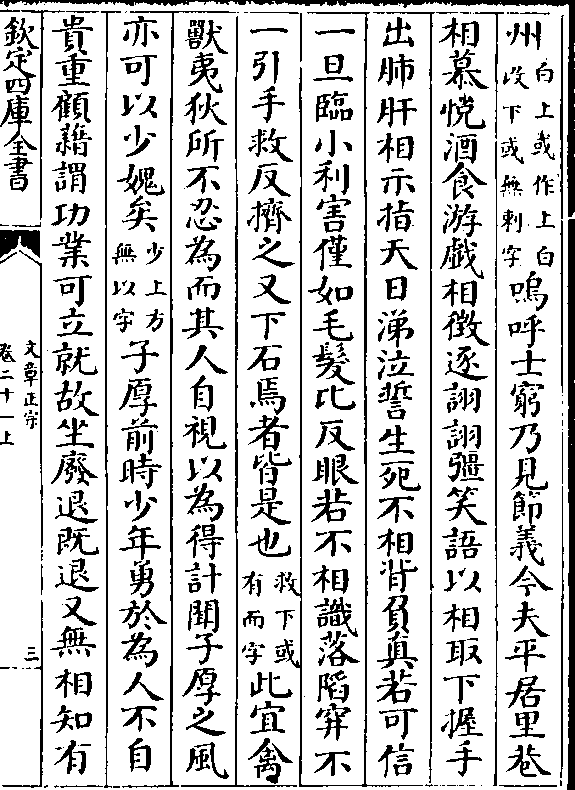 州白上或作上白改下或無刺字嗚呼士窮乃見節義今夫平居里巷
相慕悅酒食游戲相徵逐詡詡彊笑語以相取下握手
出肺肝相示指天日涕泣誓生死不相背負真若可信
一旦臨小利害僅如毛髮比反眼若不相識落陷穽不
一引手救反擠之又下石焉者皆是也救下或有而字此宜禽
獸夷狄所不忍為而其人自視以為得計聞子厚之風
亦可以少媿矣少上方無以字子厚前時少年勇於為人不自
貴重顧藉謂功業可立就故坐廢退既退又無相知有
欽定四庫全書
文章正宗
卷二十一上
三